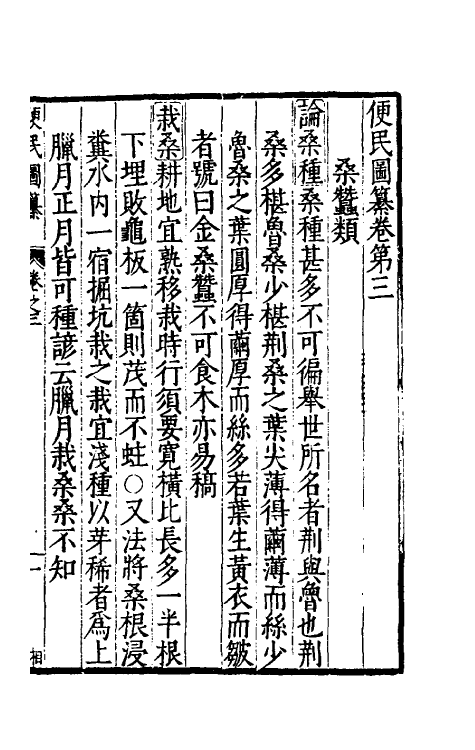 便民圖纂卷第三
桑蠶類
論桑種桑種甚多不可徧舉世所名者荆與魯也荆
桑多椹魯桑少椹荆桑之葉尖薄得繭薄而絲少
魯桑之葉圓厚得繭厚而絲多若葉生黃衣而皺
者號曰金桑蠶不可食木亦易稿
栽桑耕地宜熟移栽時行須要寬橫比長多一半根
下埋敗龜板一箇則茂而不蛀○又法將桑根浸
糞水内一宿掘坑栽之栽宜淺種以芽稀者爲上
臘月正月皆可種諺云臘月栽桑桑不知
便民圖纂 卷之三 一